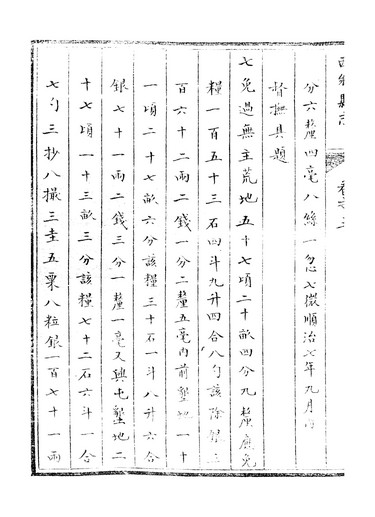 西鄉縣志 卷之三
分六釐四毫八絲一忽七微順治七年九月內
督撫具題
七免過無主荒地五十七頃二十畝四分九釐應免
糧一百五十三石四斗九升四合八勺該除銀三
百六十二兩二錢一分二釐五毫內前墾地一十
一頃二十七畝六分該糧三十石一斗八升六合
銀七十一兩二錢三分一釐一毫又興屯墾地二
十七頃一十三畝三分該糧七十二石六斗一合
七勺三抄八撮三圭五粟八粒銀一百七十一兩